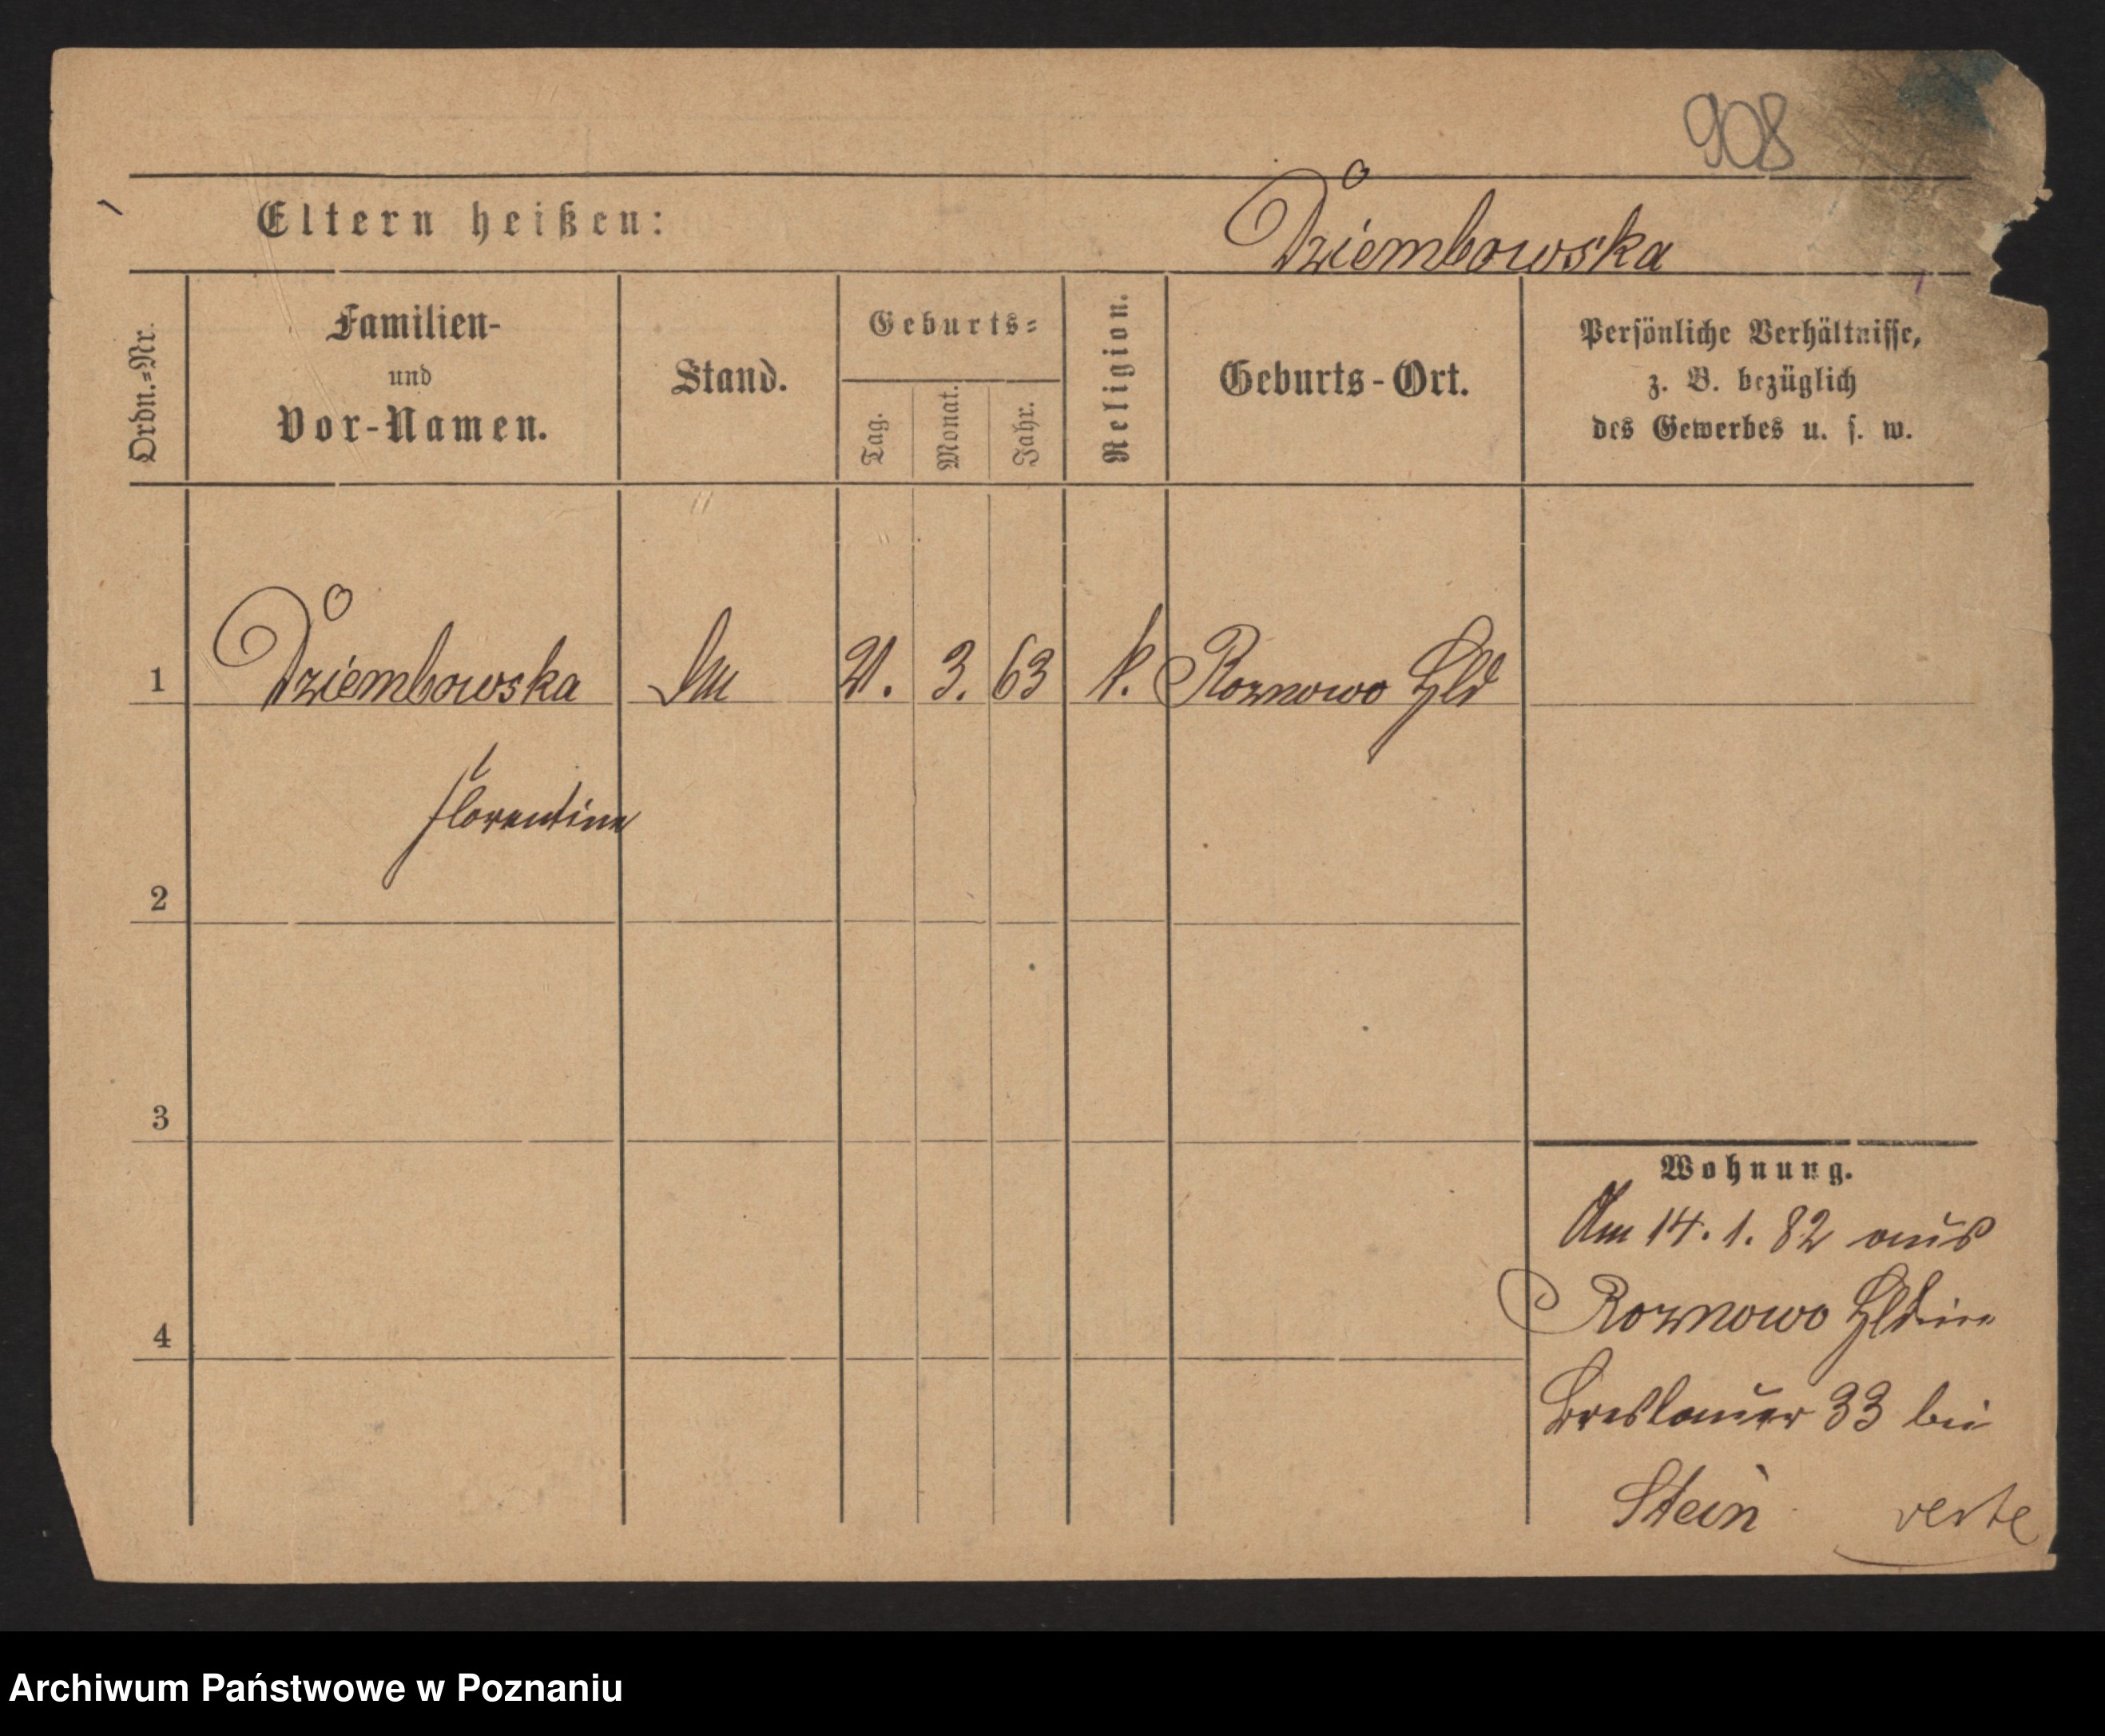 908
Eltern heißen:
Dziembowska
Ordn.=Nr.
Familien-
und
Vor-Namen.
Stand.
Geburts=
Tag.
Monat.
Jahr.
Religion.
Geburts-Ort.
Persönliche Verhältnisse,
z. B. bezüglich
des Gewerbes u. s. w.
1 Dziembowska 21. 3. 63 k. Roznowo Hld
Florentine
2
3
4
Wohnung.
Am 14. 1. 82 aus
Roznowo Hld in
Breslauer 33 bei
Stein verte
Archiwum Państwowe w Poznaniu